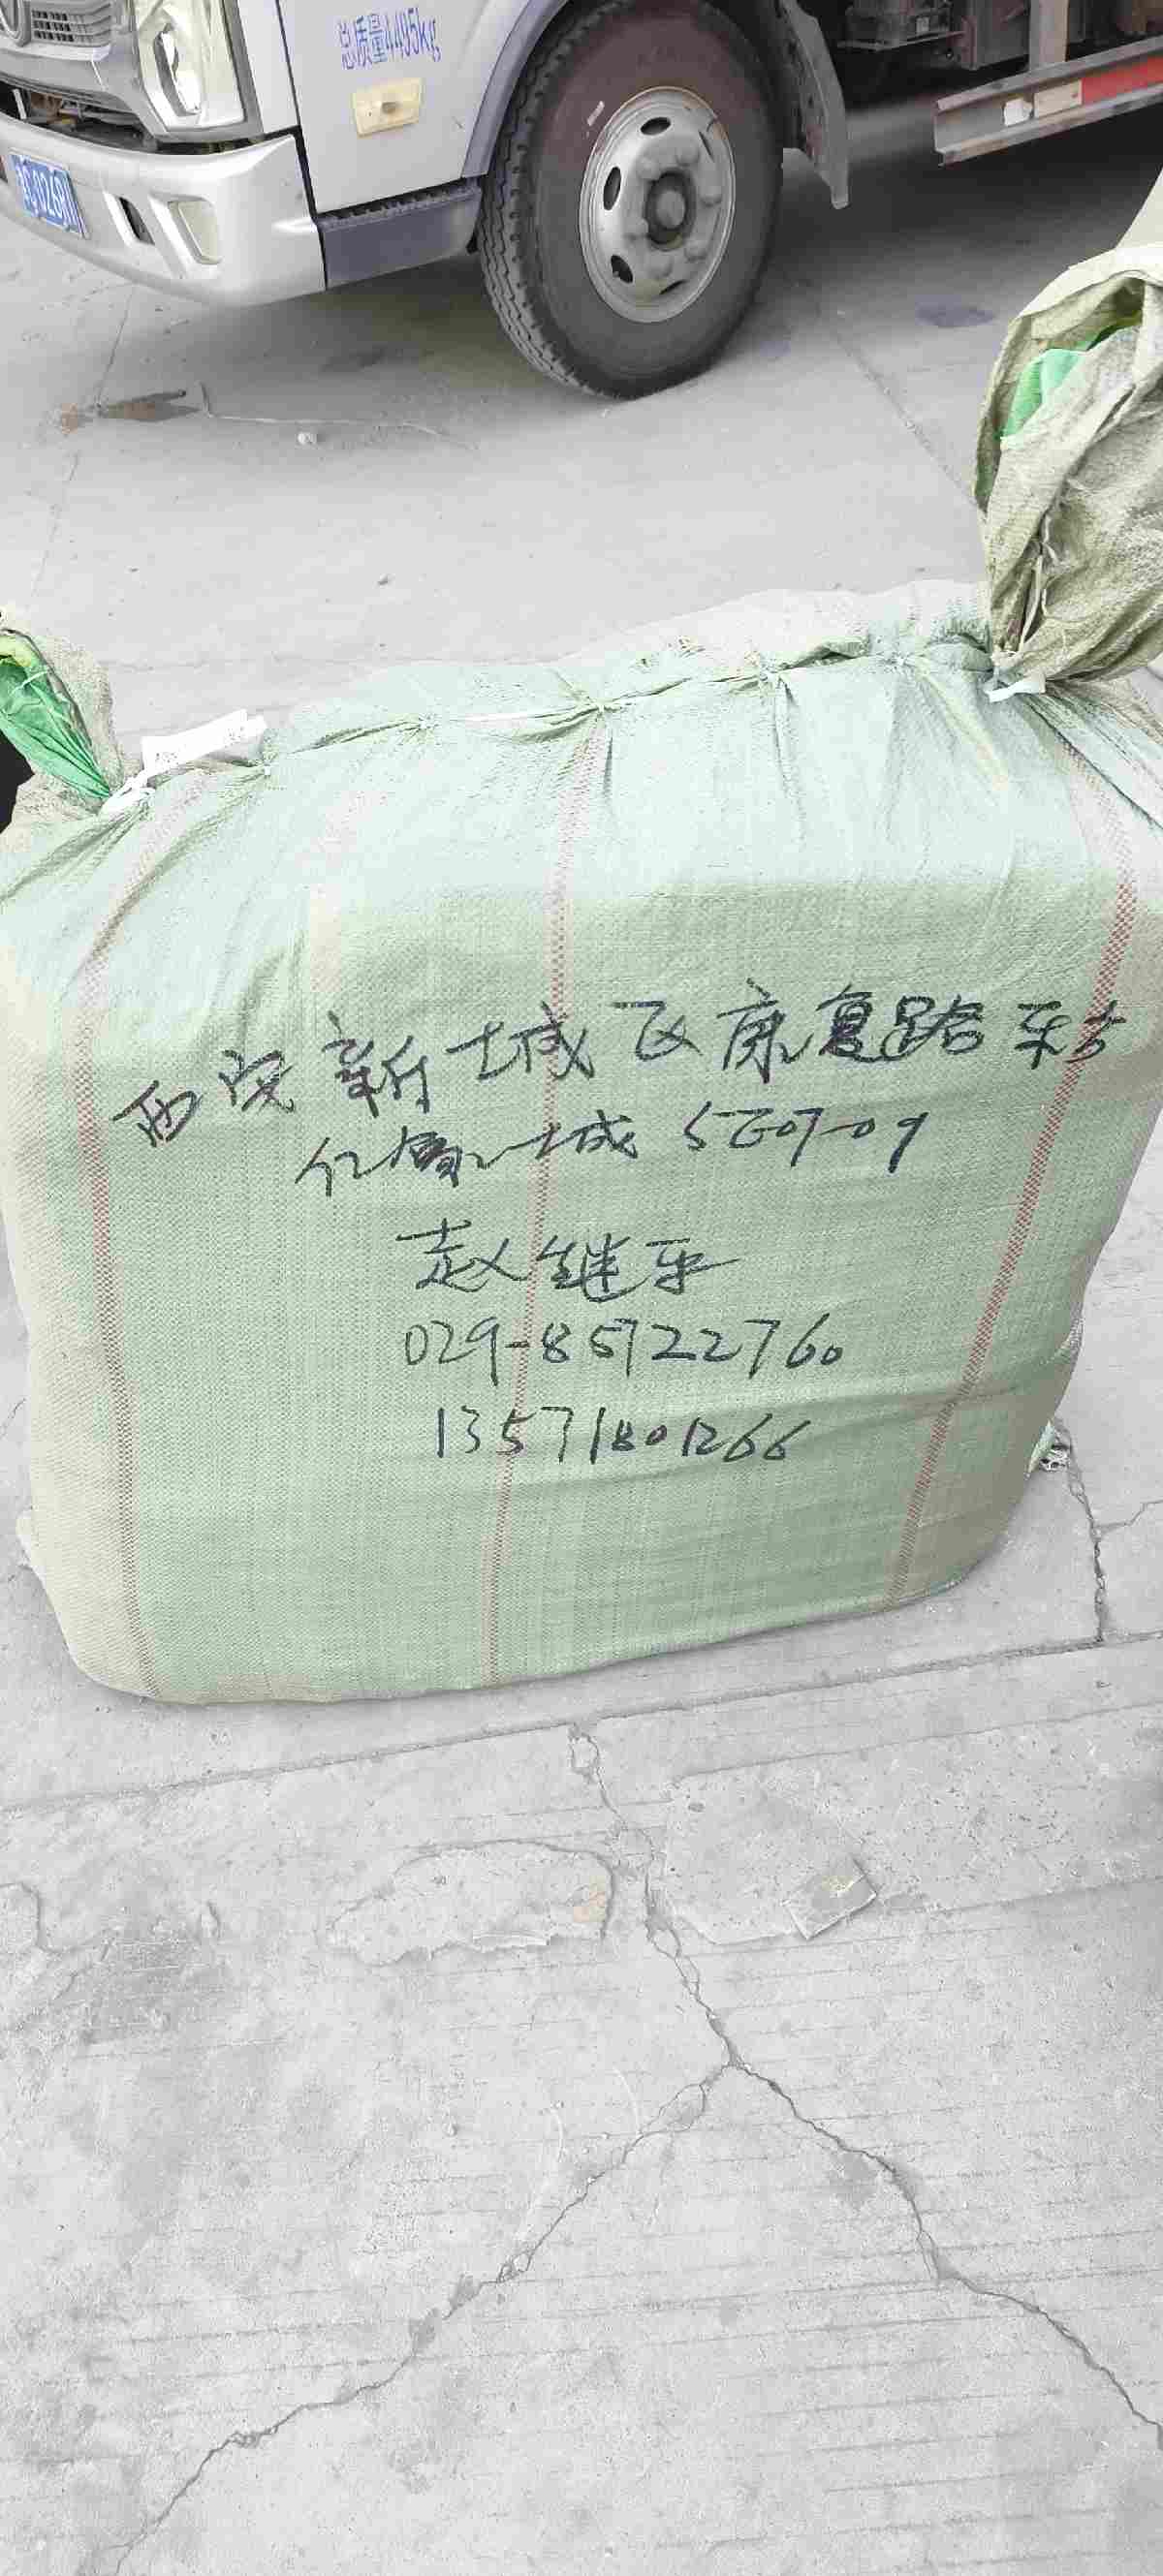 总质量4495kg
西安新城区康复路东方
亿赢城 5E07-09
赵继平
029-85722760
13571801266